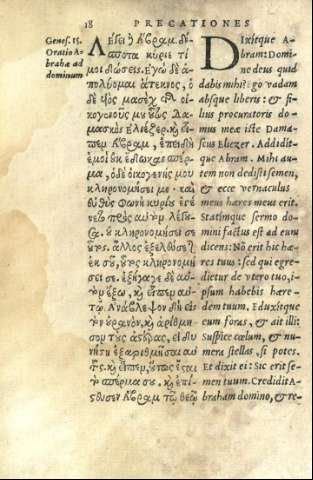 18 PRECATIONES
Genes. 15.
Oratio A-
brahæ ad
dominum
Λέγει Ἀβραμ. δέ-
σποτα κύριε τί
μοι δώσεις. ἐγὼ δὲ ἀ-
πολύομαι ἄτεκνος, ὁ
δὲ υἱὸς μασὲκ τῆς οἰ-
κογενοῦς μου οὗτος Δα-
μασκὸς ἐλιέζερ. καὶ εἶ-
πεν Ἀβραμ, ἐπειδὴ
ἐμοὶ οὐκ ἔδωκας σπέρ-
μα, ὁ δὲ οἰκογενής μου
κληρονομήσει με. καὶ
εὐθὺς φωνὴ κυρίου ἐγέ-
νετο πρὸς αὐτὸν λέγου-
σα. οὐ κληρονομήσει σε
οὗτος. ἀλλ' ὃς ἐξελεύσεται
ἐκ σοῦ, οὗτος κληρονομή-
σει σε. ἐξήγαγε δὲ αὐ-
τὸν ἔξω, καὶ εἶπεν αὐ-
τῷ. Ἀνάβλεψον δὴ εἰς
τὸν οὐρανὸν, καὶ ἀρίθμη-
σον τοὺς ἀστέρας, εἰ δυ-
νήσῃ ἐξαριθμῆσαι αὐ-
τοὺς. καὶ εἶπεν, οὕτως ἔσται
τὸ σπέρμα σου. καὶ ἐπί-
στευσεν Ἀβραμ τῷ θεῷ
DIxitque A-
bram: Domi-
ne deus quid
dabis mihi? Ego vadam
absque liberis: & fi-
lius procuratoris do-
mus meæ iste Dama-
scus Eliezer. Addidit-
que Abram. Mihi au-
tem non dedisti semen,
& ecce vernaculus
meus hæres meus erit.
Statimque sermo do-
mini factus est ad eum
dicens: Nō erit hic hæ-
res tuus: sed qui egre-
dietur de vtero tuo, i-
psum habebis hære-
dem tuum. Eduxitque
eum foras, & ait illi:
Suspice cælum, & nu-
mera stellas, si potes.
Et dixit ei: Sic erit se-
men tuum. Credidit A-
braham domino, & re-